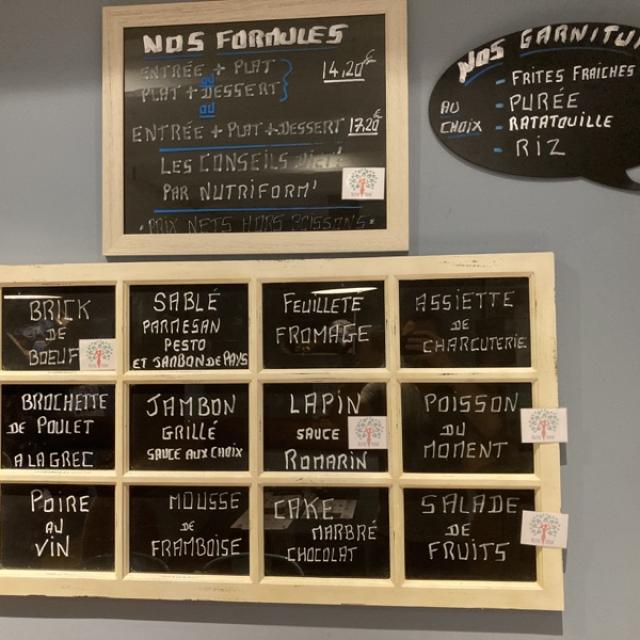 NOS FORMULES
ENTRÉE + PLAT
ou
PLAT + DESSERT
14,20€
ou
ENTRÉE + PLAT + DESSERT 17,20€
LES CONSEILS DIÉT
PAR NUTRIFORM'
*PRIX NETS HORS BOISSONS*
NOS GARNITU
AU CHOIX
- FRITES FRAICHES
- PURÉE
- RATATOUILLE
- RIZ
BRICK
DE
BOEUF
SABLÉ
PARMESAN
PESTO
ET JAMBON DE PAYS
FEUILLETE
FROMAGE
ASSIETTE
DE
CHARCUTERIE
BROCHETTE
DE POULET
A LA GREC
JAMBON
GRILLÉ
SAUCE AUX CHOIX
LAPIN
SAUCE
ROMARIN
POISSON
DU
MOMENT
POIRE
AU
VIN
MOUSSE
DE
FRAMBOISE
CAKE
MARBRÉ
CHOCOLAT
SALADE
DE
FRUITS